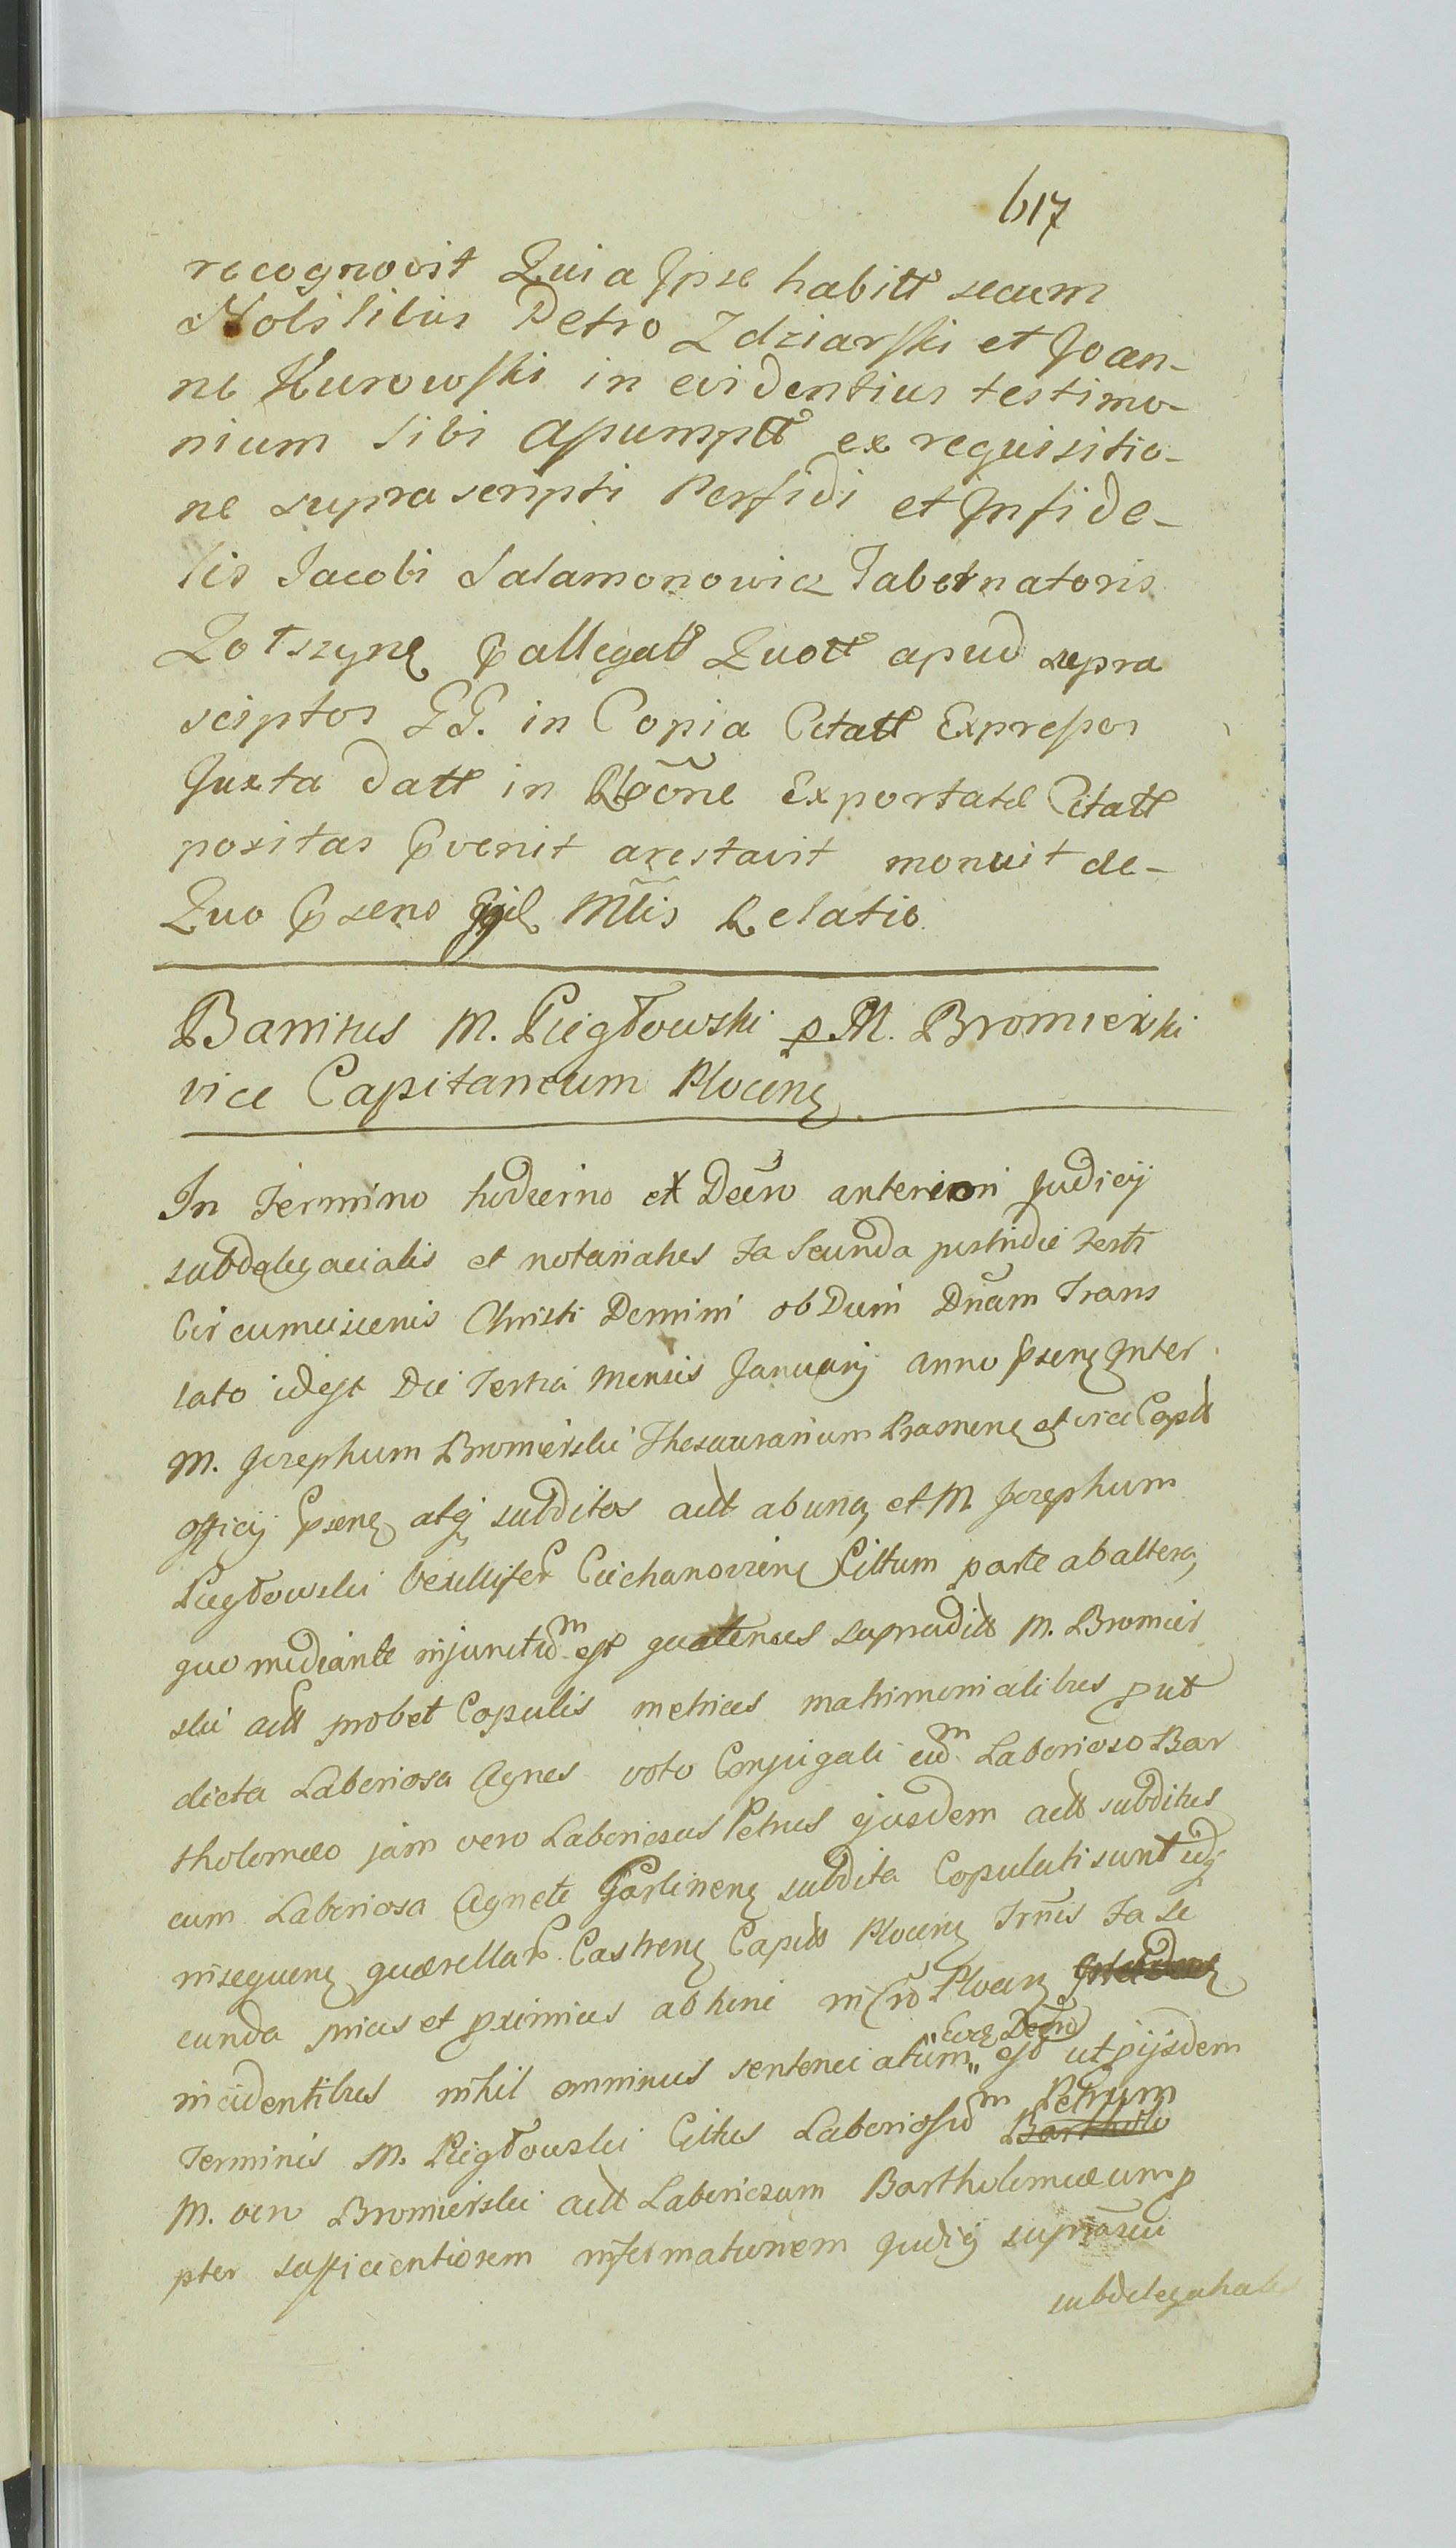 617
recognovit Quia Ipse habitt secum
Nobilibus Petro Zdziarski et Joan-
ne Kurowski in evidentius testimo-
nium sibi assumptt ex requisitio-
ne suprascripti Perfidi et Infide-
lis Jacobi Salamonowicz Tabernatoris
allegatt Quott apud supra
sciptos GG. in Copia Citatt Expressos
Juxta datt in Rlõne Exportatae Citatt
positas pvenit arestavit monuit de-
Quo pseno Mtis Relatio
Banitus M. Pięgłowski p M. Bromierski
vice Capitaneum Plocenę
In Termino hodierno ex Decro anteriori Judicij
subdelegacialis et notariales fa Secunda postridie festi
Circumcisionis Christi Domini ob Diem Dnãm Trans
lato idest Die Tertia Mensis Januarij anno psenę Inter
M. Josephum Bromierski Thesaurarium Prasnenę et vice Captt
officij psenę atq subditos actt ab una, et M. Josephum
Pięgłowski Vexillifer Ciechanovienę Cittum parte ab altera,
quo mediante injunctum est quatenus supradictt M. Bromier
ski actt probet Copulis metrices matrimonialibus put
dicta Laboriosa Agnes voto Conjugali cum Laborioso Bar
tholomeo jam vero Laboriosus Petrus ejusdem actt subditus
cum Laboriosa Agnete subdita Copulati sunt idq
insequenę quaerellar Castrenę Capitt Plocenę Trnis fa Se
cunda prius et pximius abhinc in Cro Plocen
incidentibus nihil ominus sentenciatum Decro est ut pijsdem
Terminis M. Pięgłowski Cittus Laboriosum Petrum Bartholo
M. vero Bromierski actt Laboriosum Bartholomeum p
pter sufficientiorem informationem Judicij
subdelegatiales